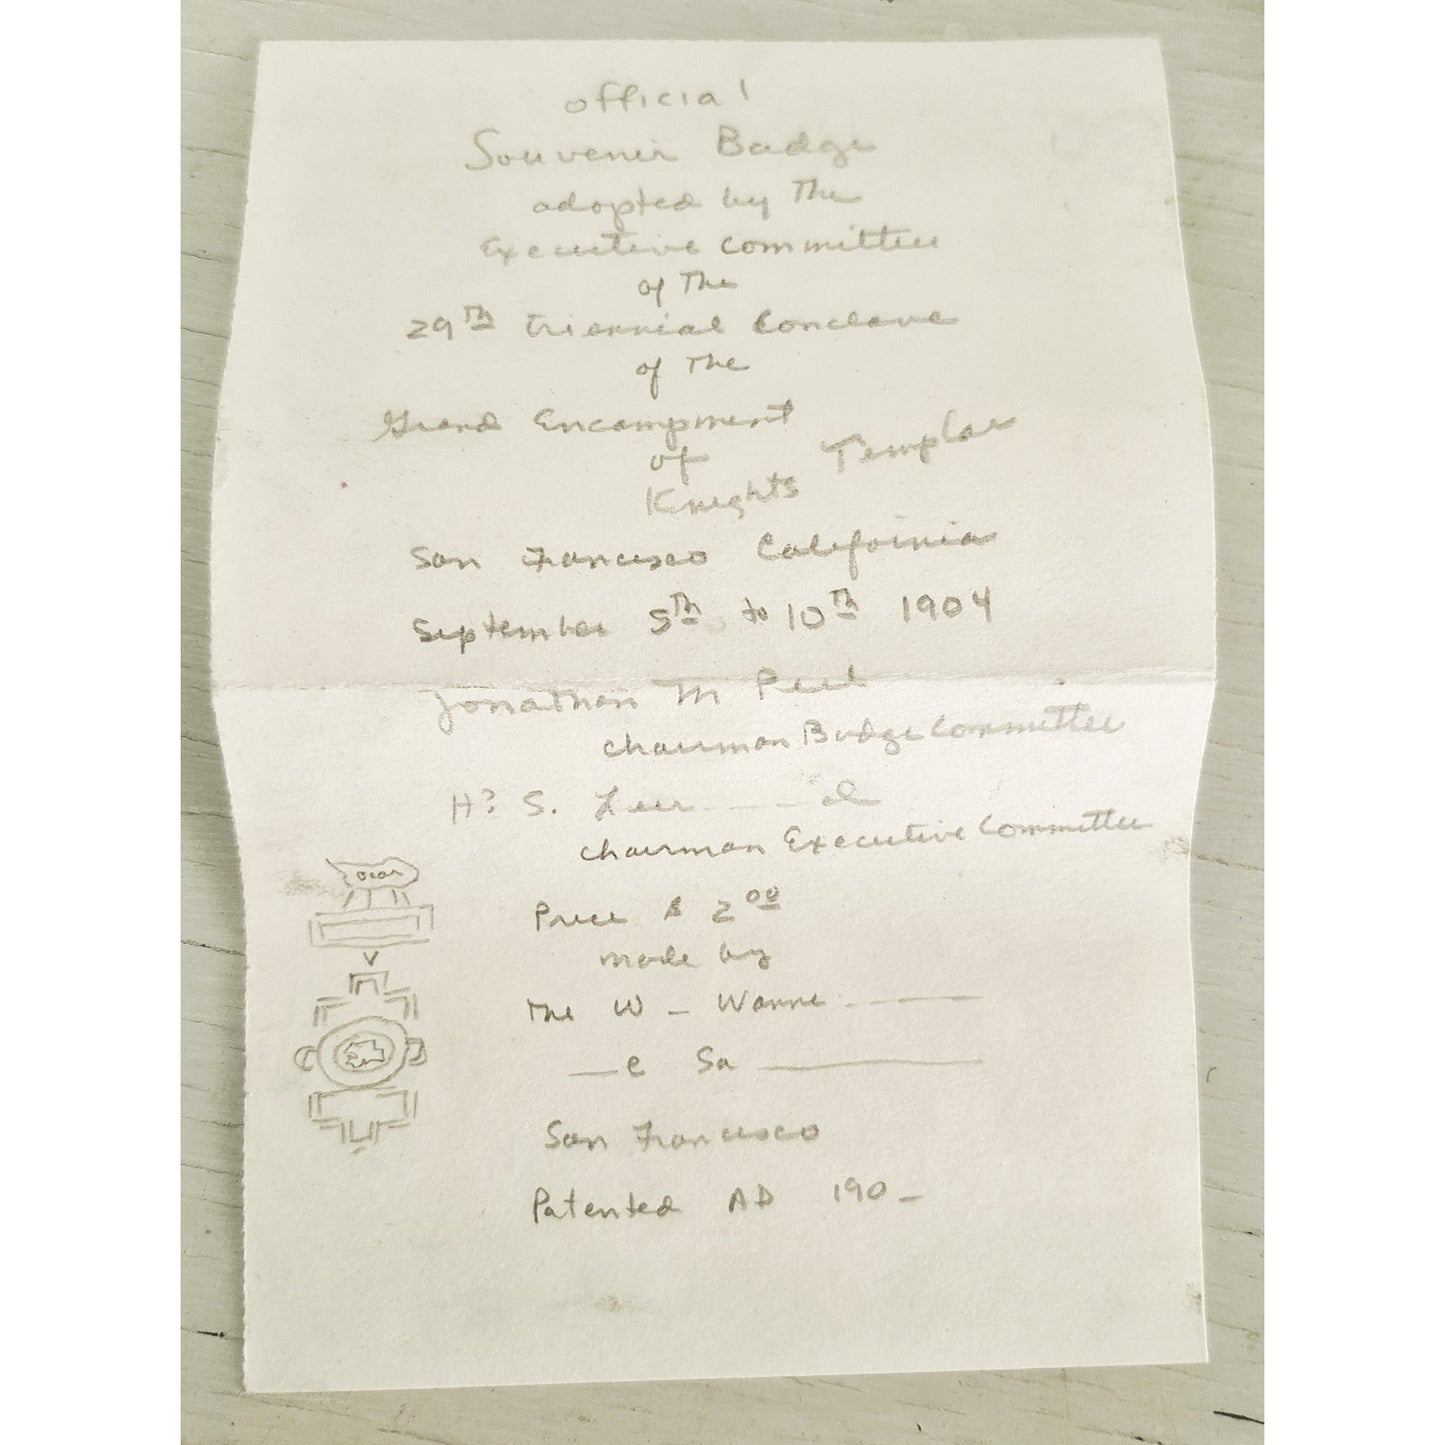 official
Souvenir Badge
adopted by The
Executive Committee
of The
29Th Triennial Conclave
of The
Grand Encampment
of
Knights Templar
San Francisco California
September 5Th to 10Th 1904
Jonathan M Peel
chairman Badge Committee
H? S. ----- al
chairman Executive Committee
Price $ 2 00
made by
The W - Wanne -----
—e Sa —————
San Francisco
Patented AD 190_
bear